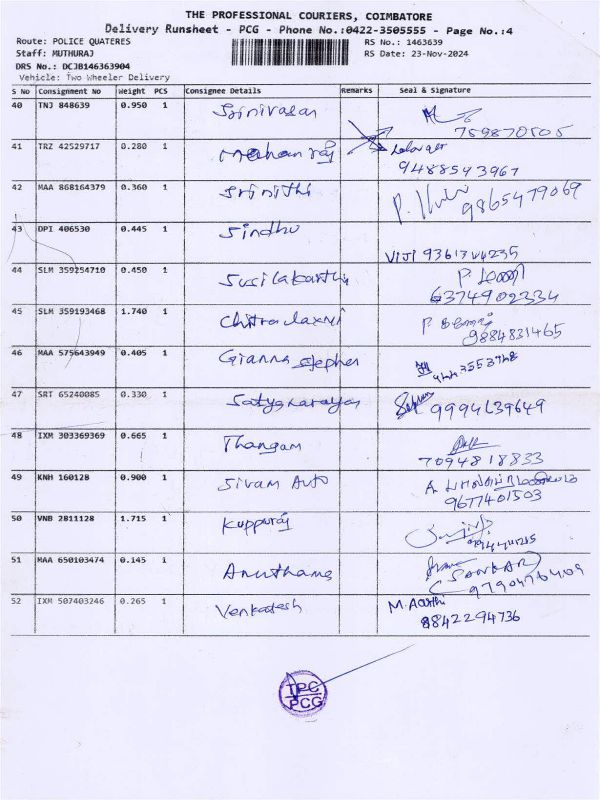 THE PROFESSIONAL COURIERS, COIMBATORE
Delivery Runsheet - PCG - Phone No.:0422-3505555 - Page No.:4
Route: POLICE QUATERES RS No.: 1463639
Staff: MUTHURAJ RS Date: 23-Nov-2024
DRS No.: DCJB146363904
Vehicle: Two Wheeler Delivery
S No Consignment No Weight PCS Consignee Details Remarks Seal & Signature
40 TNJ 848639 0.950 1 Srinivasan
759870505
41 TRZ 42529717 0.280 1 Mohan raj
9488543967
42 MAA 868164379 0.360 1 Srinithi
9865479069
43 DPI 406530 0.445 1 Sindhu
VIJI
44 SLM 359254710 0.450 1 Susilakarthi
6374902334
45 SLM 359193468 1.740 1 Chitralaxmi
9884831465
46 MAA 575643949 0.405 1 Gianna Stephen
47 SRT 65240085 0.330 1 Satyanarayan
9994639649
48 IXM 303369369 0.665 1 Thangam
7094818833
49 KNH 160128 0.900 1 Sivam Auto
9677401503
50 VNB 2811128 1.715 1 Kuppuraj
51 MAA 650103474 0.145 1 Anuthama
SANKAR
9790476409
52 IXM 507403246 0.265 1 Venkatesh M. Aarthi
8842294736
TPC
PCG